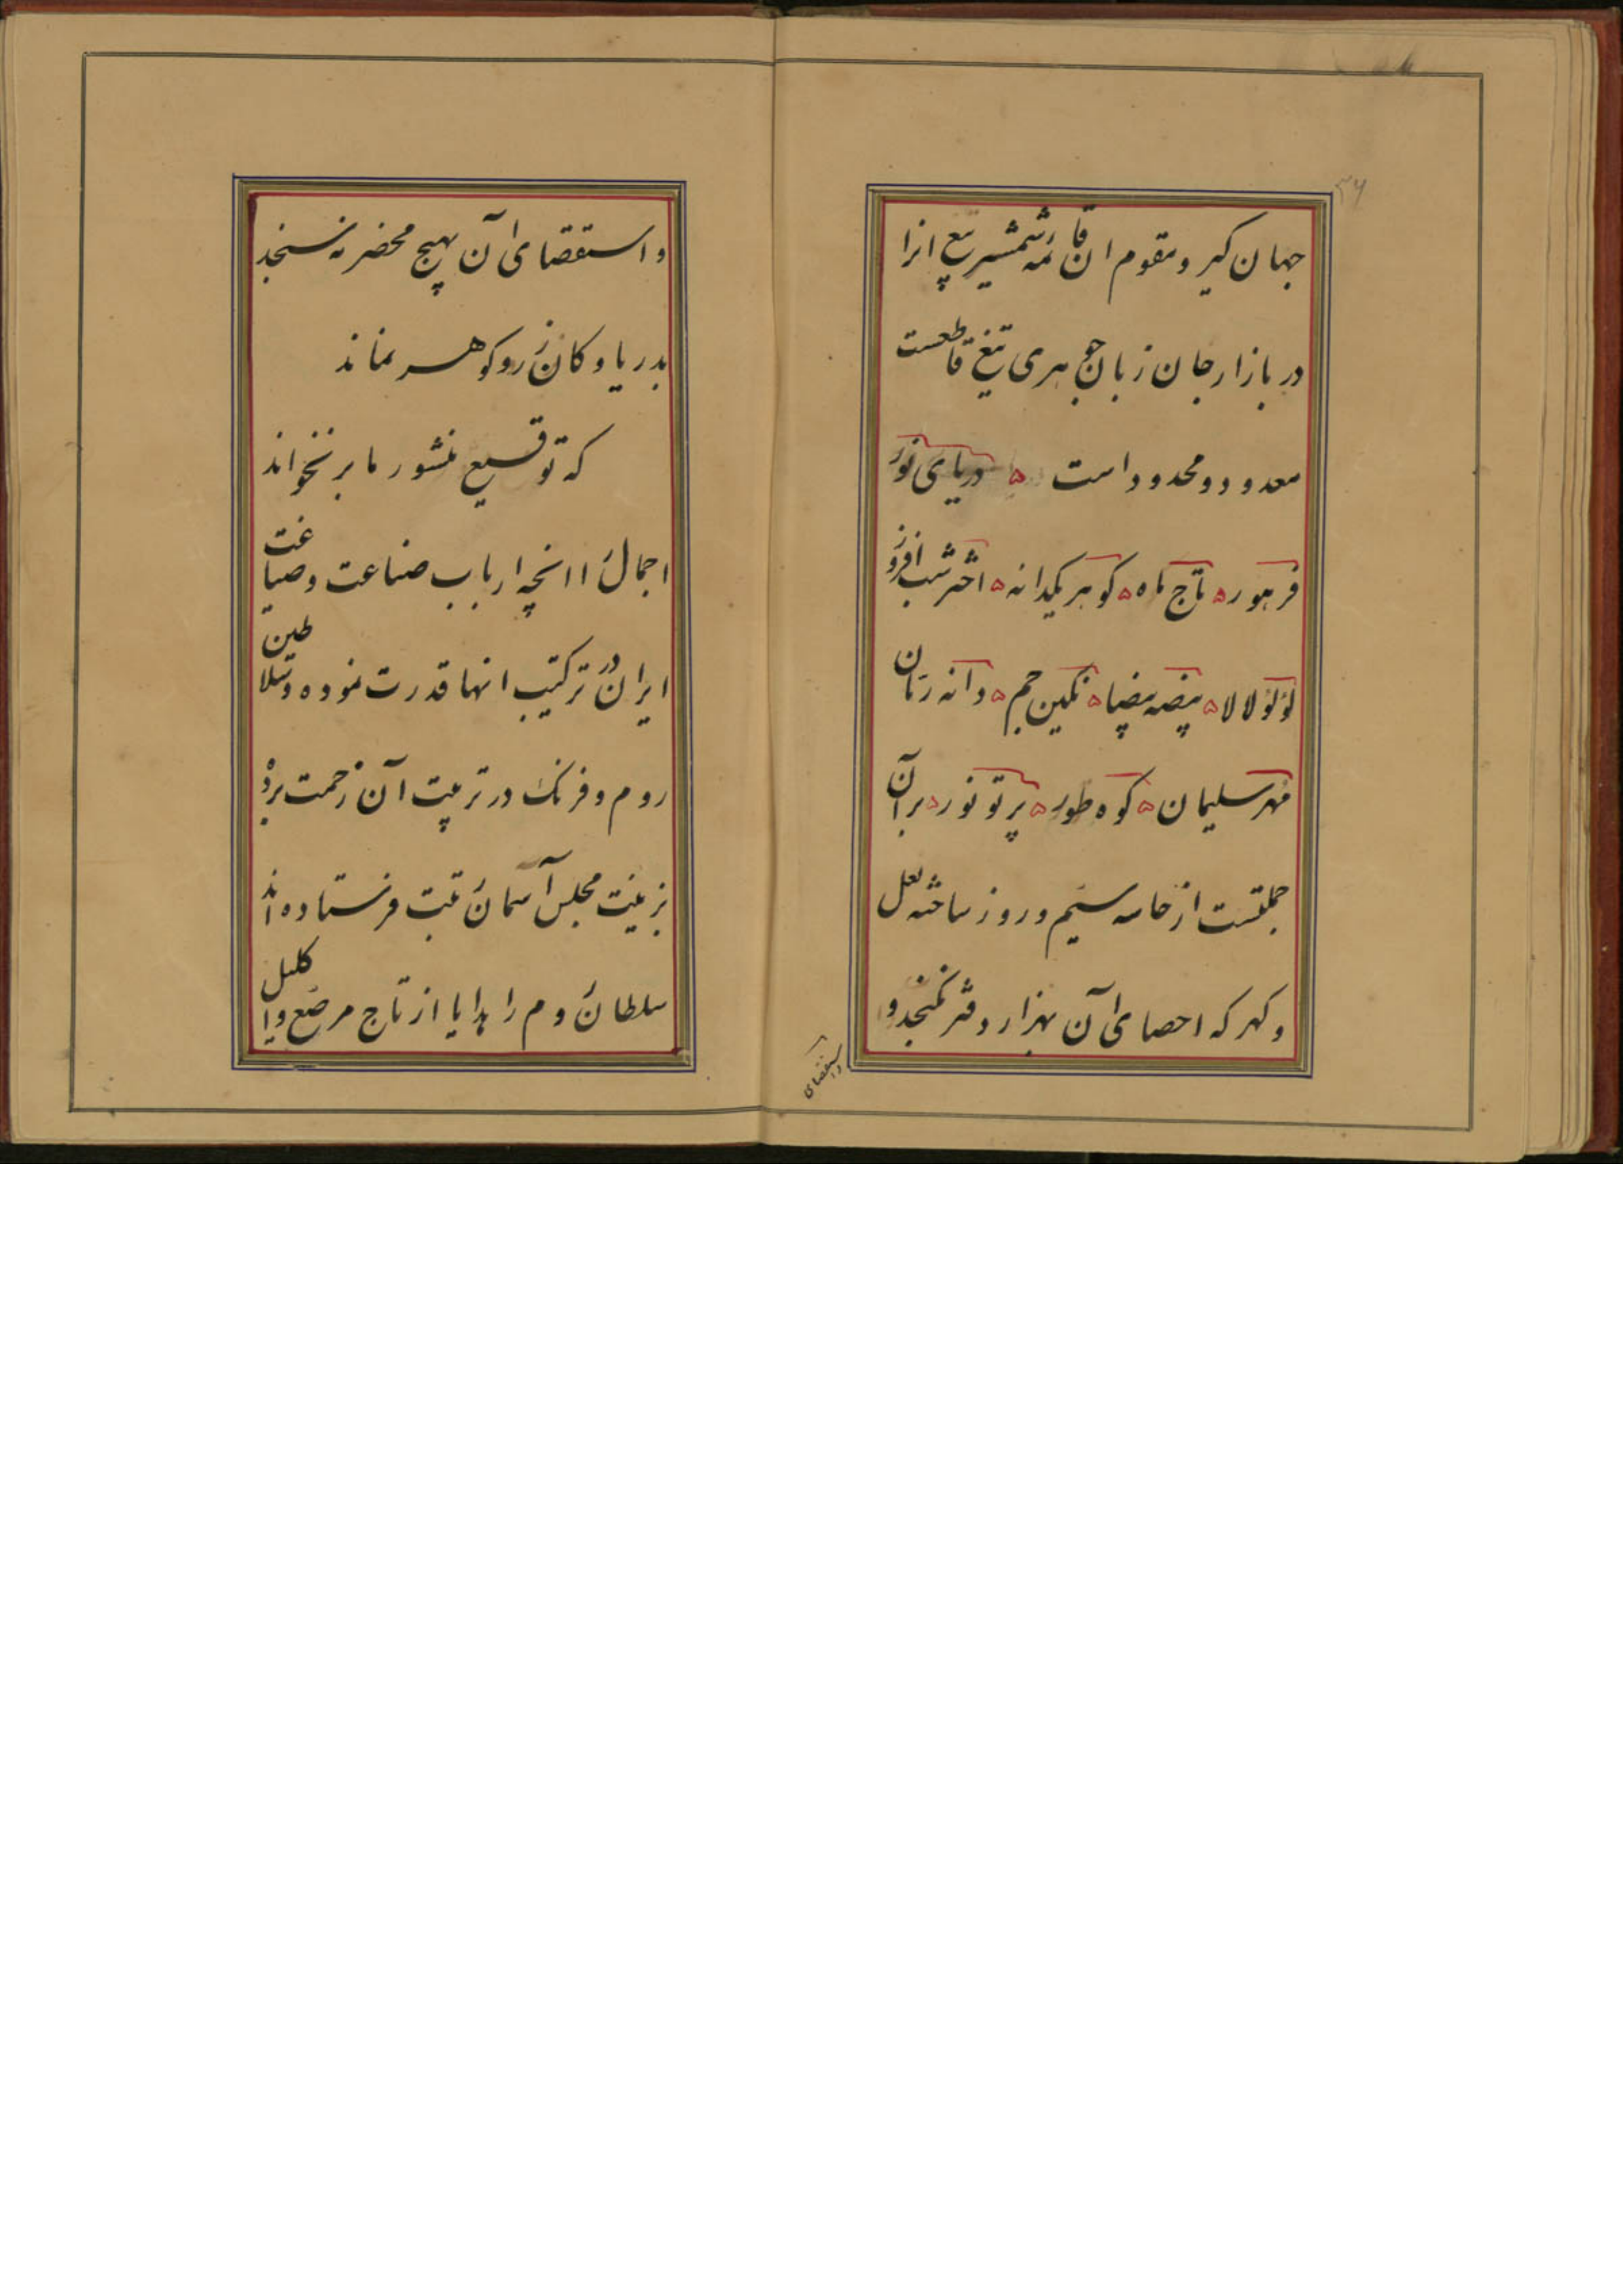 ۲۶
جهان کیر و مقوم ان قائمه شمشیر تیغ انرا
در بازار جان زبان جوهری تیغ قاطعست
معدود و محدود است ۵ دریای نور
فر هور ۵ تاج ماه ۵ کوهر یکدانه ۵ اختر شب افروز
لؤلؤ لالا ۵ بیضه بیضا ۵ نکین جم ۵ دانه رمان
مهر سلیمان ۵ کوه طور ۵ پرتو نور ۵ بر آن
جملتست از خامه سیم و زر و ساخته لعل
و کهر که احصای آن بهزار دفتر نکنجد و
واستقصای
و استقصای آن بهیچ محضر نه سنجد
بدریا و کان زر و کوهر نماند
که توقیع منشور ما بر نخواند
اجمالً اانچه ارباب صناعت و صیاغت
ایران در ترکیب انها قدرت نموده و سلاطین
روم و فرنک در تربیت آن زحمت برده
بزینت مجلس آسمان رتبت فرستاده اند
سلطان روم را هدایا از تاج مرصع و اکلیل